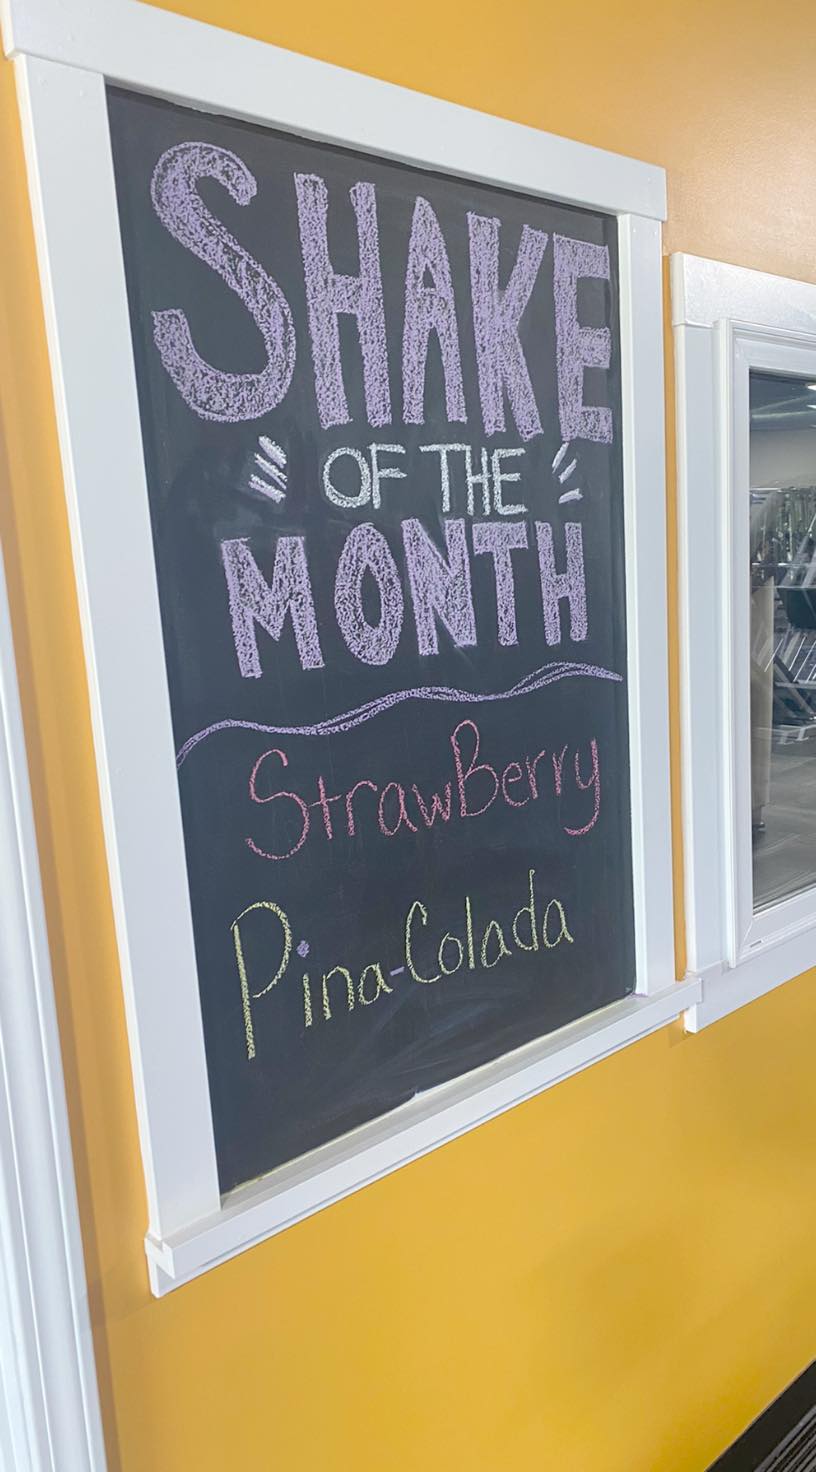 SHAKE
OF THE
MONTH
StrawBerry
Pina-Colada